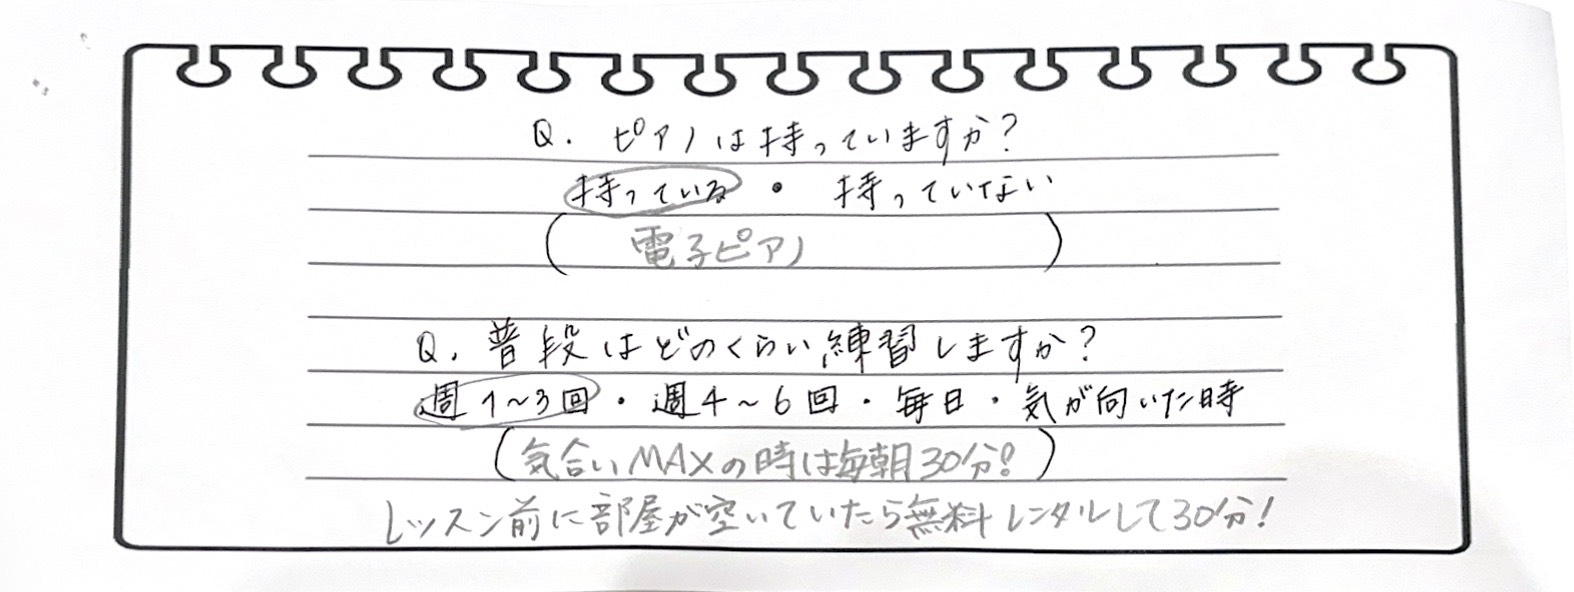 Q. ピアノは持っていますか?
持っている ・ 持っていない
( 電子ピアノ )
Q. 普段はどのくらい練習しますか?
週1〜3回・週4〜6回・毎日・気が向いた時
(気合いMAXの時は毎朝30分!)
レッスン前に部屋が空いていたら無料レンタルして30分!